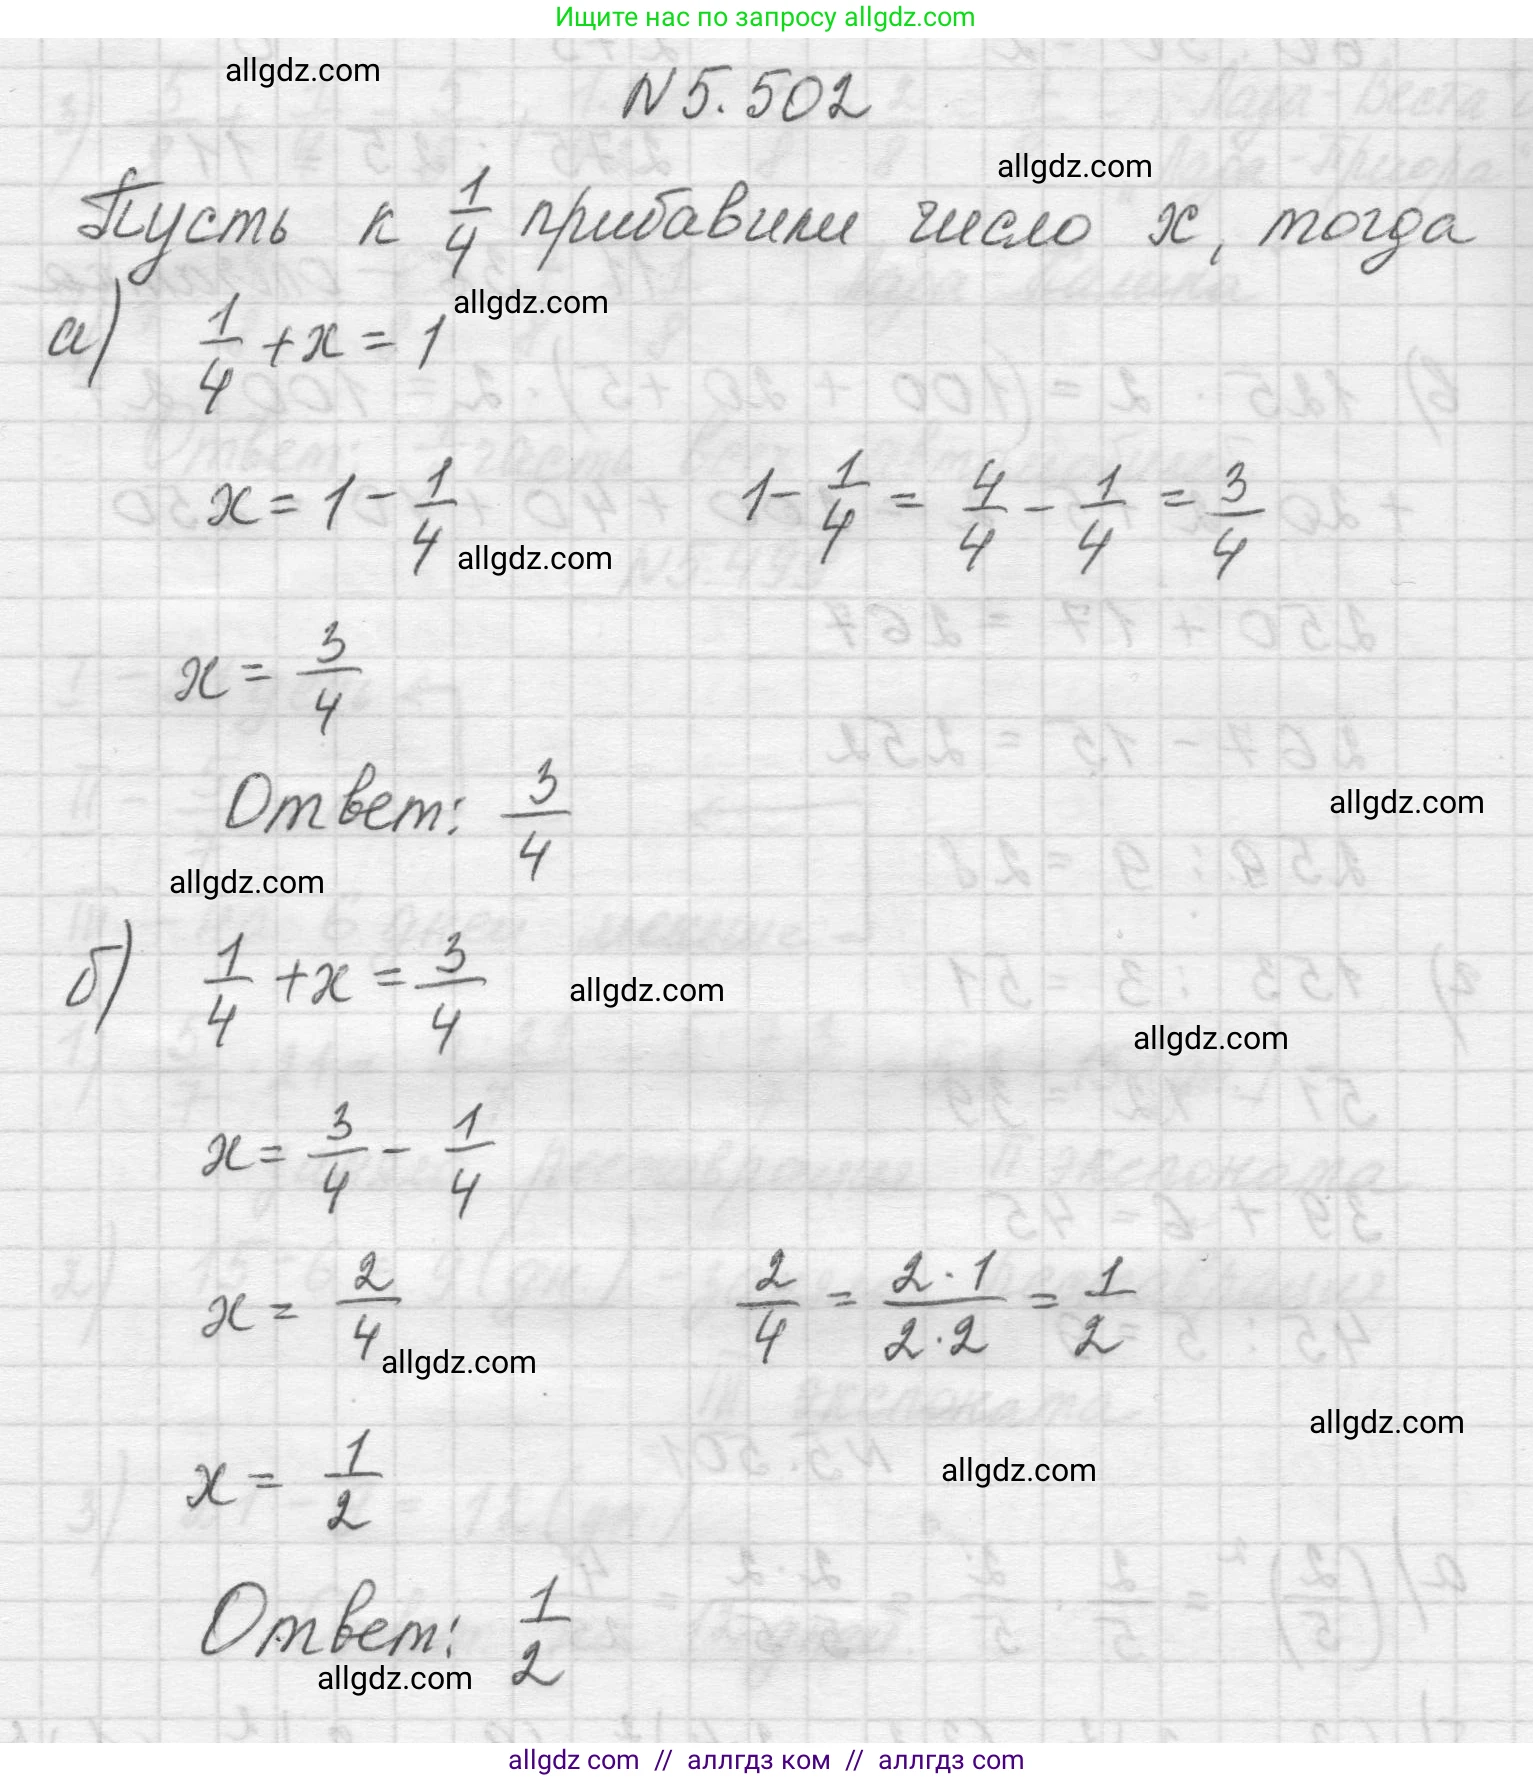 Ищите нас по запросу allgdz.com
allgdz.com
N 5.502
allgdz.com
Пусть к 1/4 прибавили число x, тогда
allgdz.com
а) 1/4 + x = 1
x = 1 - 1/4    1 - 1/4 = 4/4 - 1/4 = 3/4
allgdz.com
x = 3/4
Ответ: 3/4
allgdz.com
allgdz.com
б) 1/4 + x = 3/4
allgdz.com
allgdz.com
x = 3/4 - 1/4
x = 2/4    2/4 = 2·1/2·2 = 1/2
allgdz.com
allgdz.com
allgdz.com
x = 1/2
Ответ: 1/2
allgdz.com
allgdz com // аллгдз ком // аллгдз com